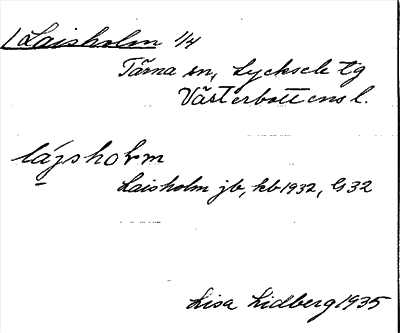 Laisholm 1/4
Tärna sn, Lycksele tg
Västerbottens l.
lájshoḷm
Laisholm jb, kb 1932, G 32
Lisa Lidberg 1935